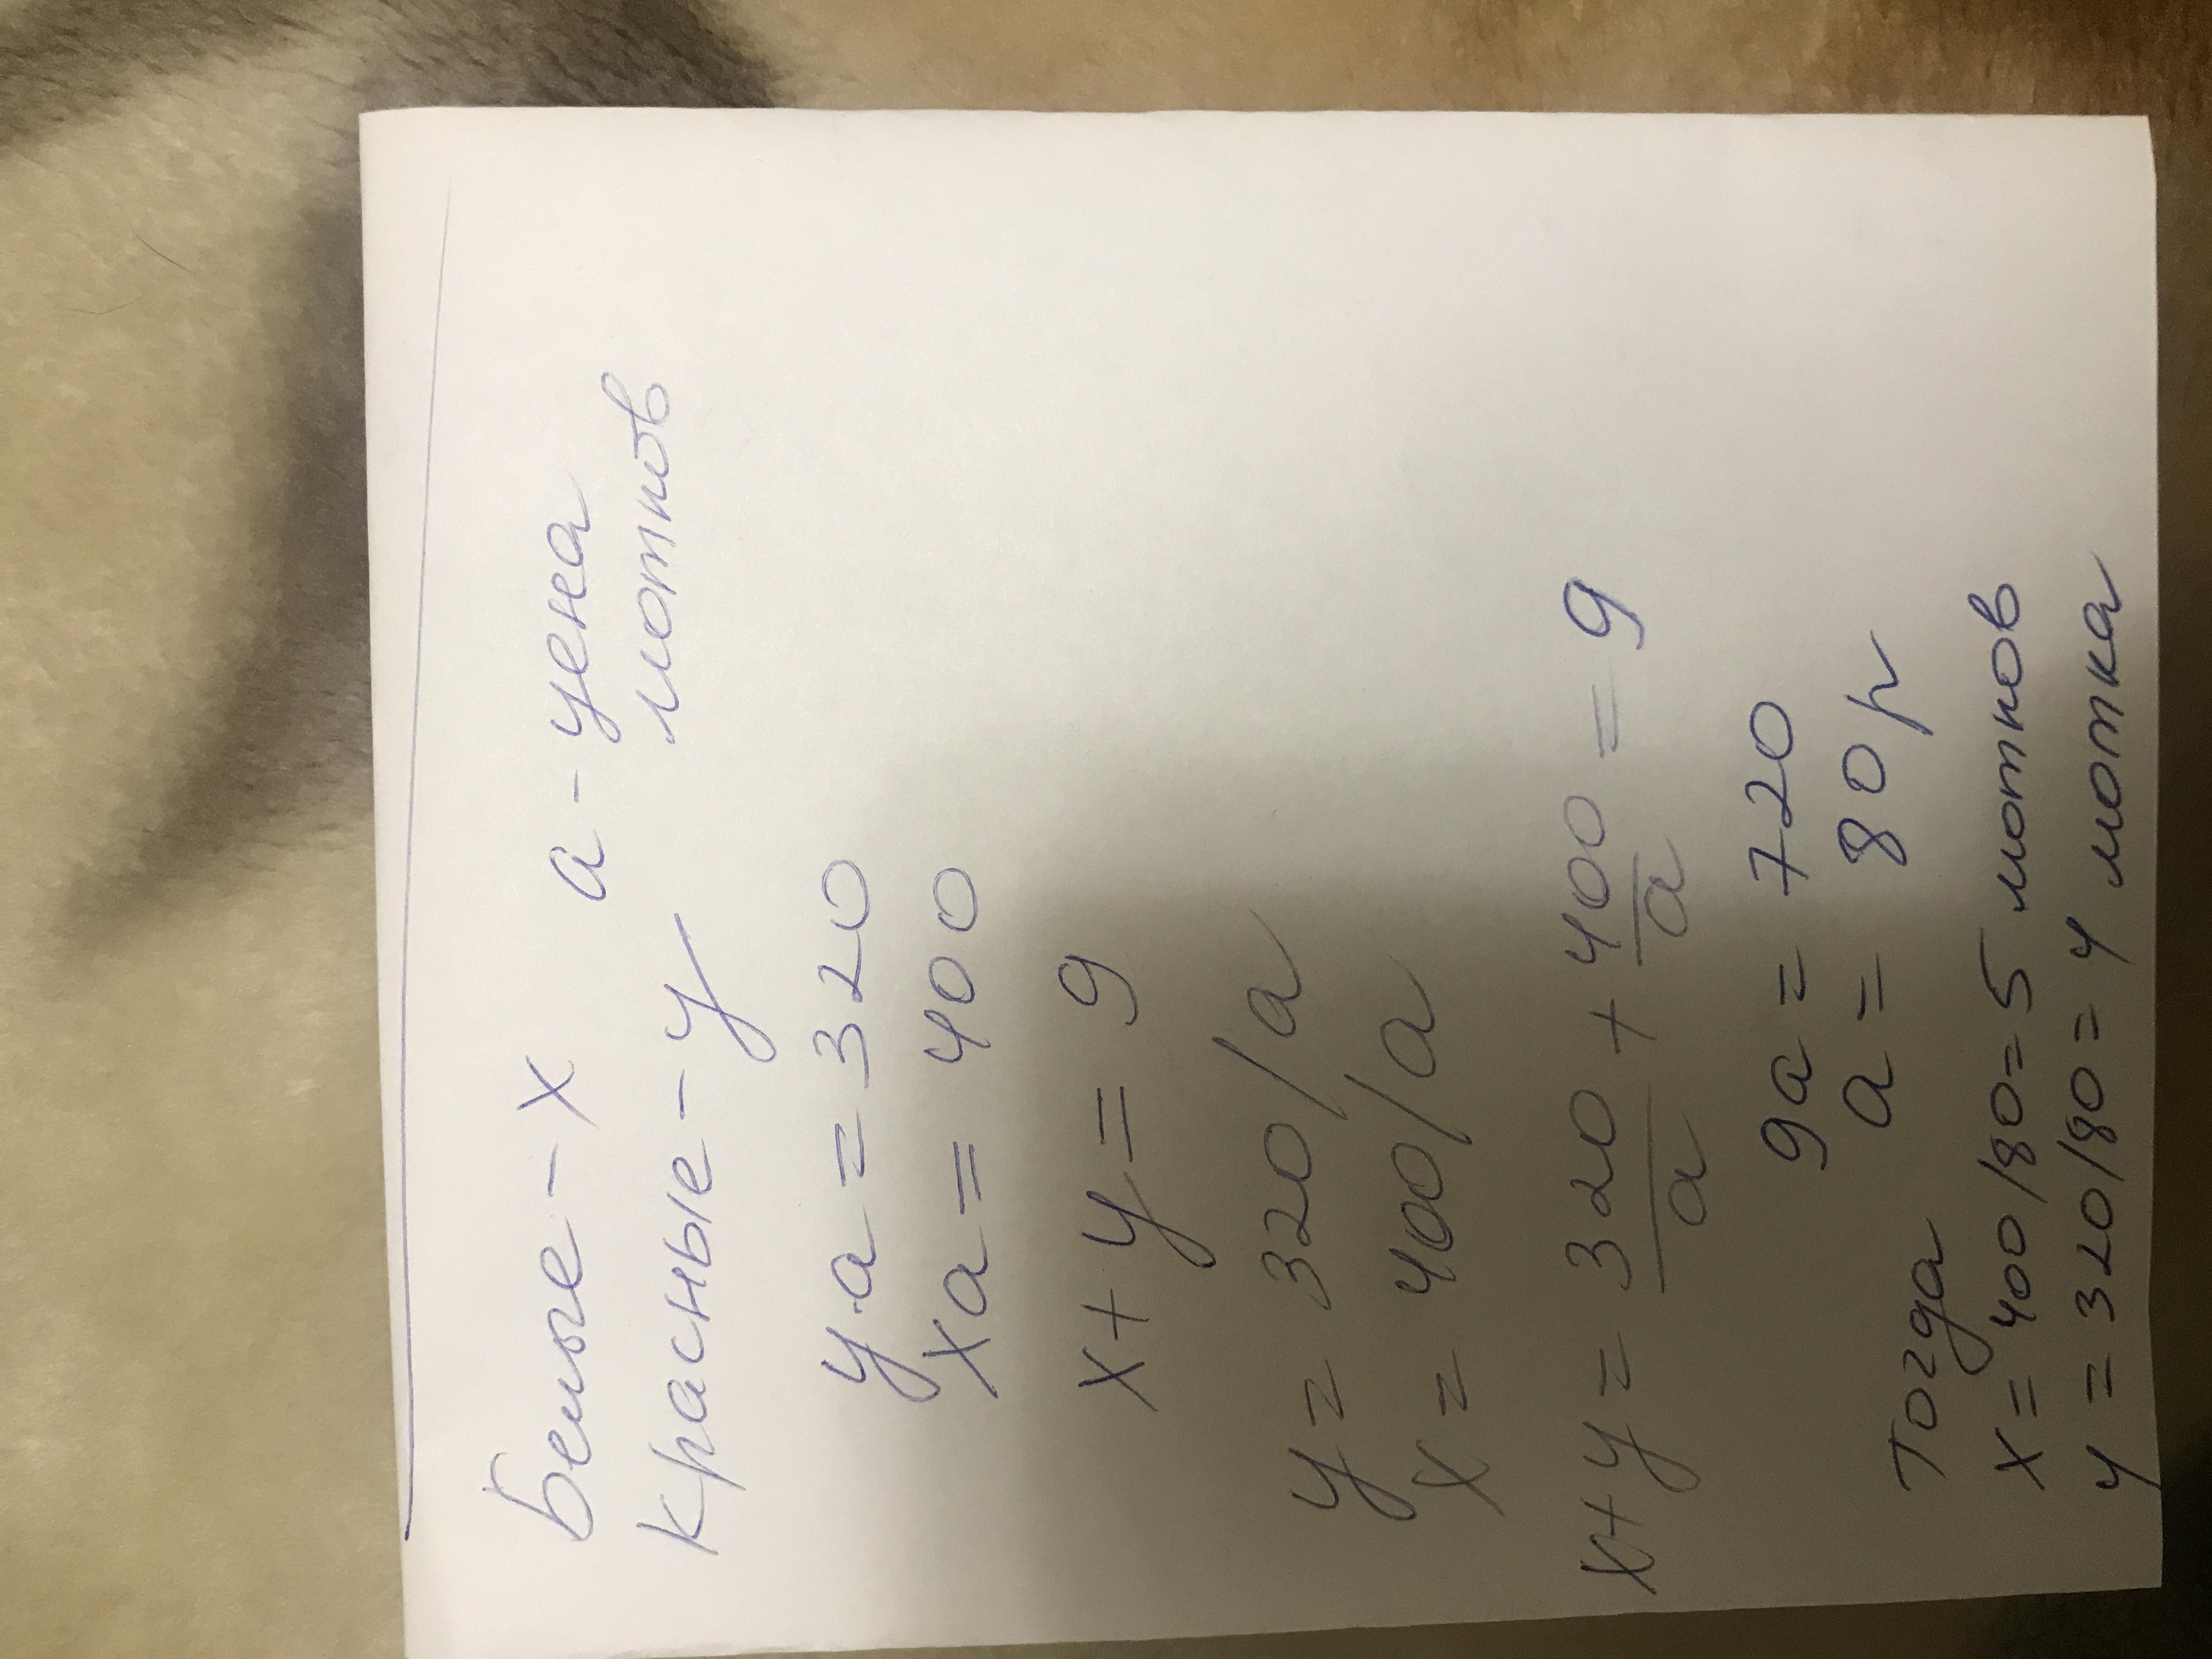 Белые - х а - цена
Красные - у мотков
у·а = 320
ха = 400
х + у = 9
у = 320/а
х = 400/а
х+у = 320/а + 400/а = 9
9а = 720
а = 80 р
Тогда
х = 400/80 = 5 мотков
у = 320/80 = 4 мотка